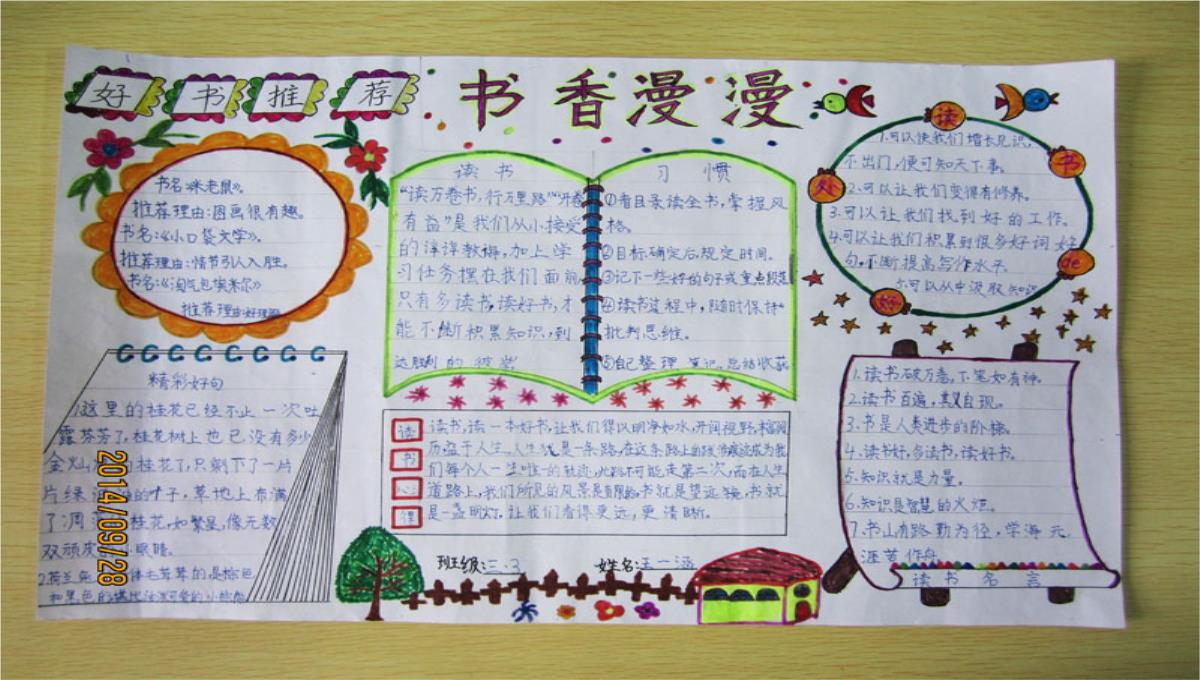 好书推荐
书香漫漫
书名:《米老鼠》。
推荐理由:图画很有趣。
书名:《小口袋大学》。
推荐理由:情节引人入胜。
书名:《淘气包埃米尔》
推荐理由:好理
读书
"读万卷书,行万里路""开卷
有益"是我们从小接受
的谆谆教诲,加上学
习任务摆在我们面前
只有多读书,读好书,才
能不断积累知识,到
达胜利的彼岸
习惯
①看目录读全书,掌握风
格。
②目标确定后规定时间。
③记下一些好的句子或重点段落
④读书过程中,随时保持
批判思维。
⑤自己整理笔记,总结收获
读书de好处
1.可以使我们增长见识。
不出门,便可知天下事。
2.可以让我们变得有修养。
3.可以让我们找到好的工作。
4.可以让我们积累到很多好词好
句,不断提高写作水平。
5.可以从中汲取知识
精彩好句
1这里的桂花已经不止一次吐
露芬芳了,桂花树上也已没有多少
金灿 桂花了,只剩下了一片
片绿 的叶子,草地上布满
了凋 桂花,如繁星,像无数
双顽皮 小眼睛。
2.荷兰 体毛茸茸的,是棕色
和黑色的
2014/09/28
读书心得
读书,读一本好书,让我们得以明净如水,开阔视野,
历益于人生。人生就是一条路,在这条路上的
们每个人一生唯一的轨迹,此路不可能走第二次,而在人生
道路上,我们所见的风景是有限的,书就是望远镜,书就
是一盏明灯,让我们看得更远,更清晰。
班级:三、3 姓名:王一涵
1.读书破万卷,下笔如有神。
2.读书百遍,其义自现。
3.书是人类进步的阶梯。
4.读书好,多读书,读好书。
5.知识就是力量。
6.知识是智慧的火炬。
7.书山有路勤为径,学海无
涯苦作舟
读书名言